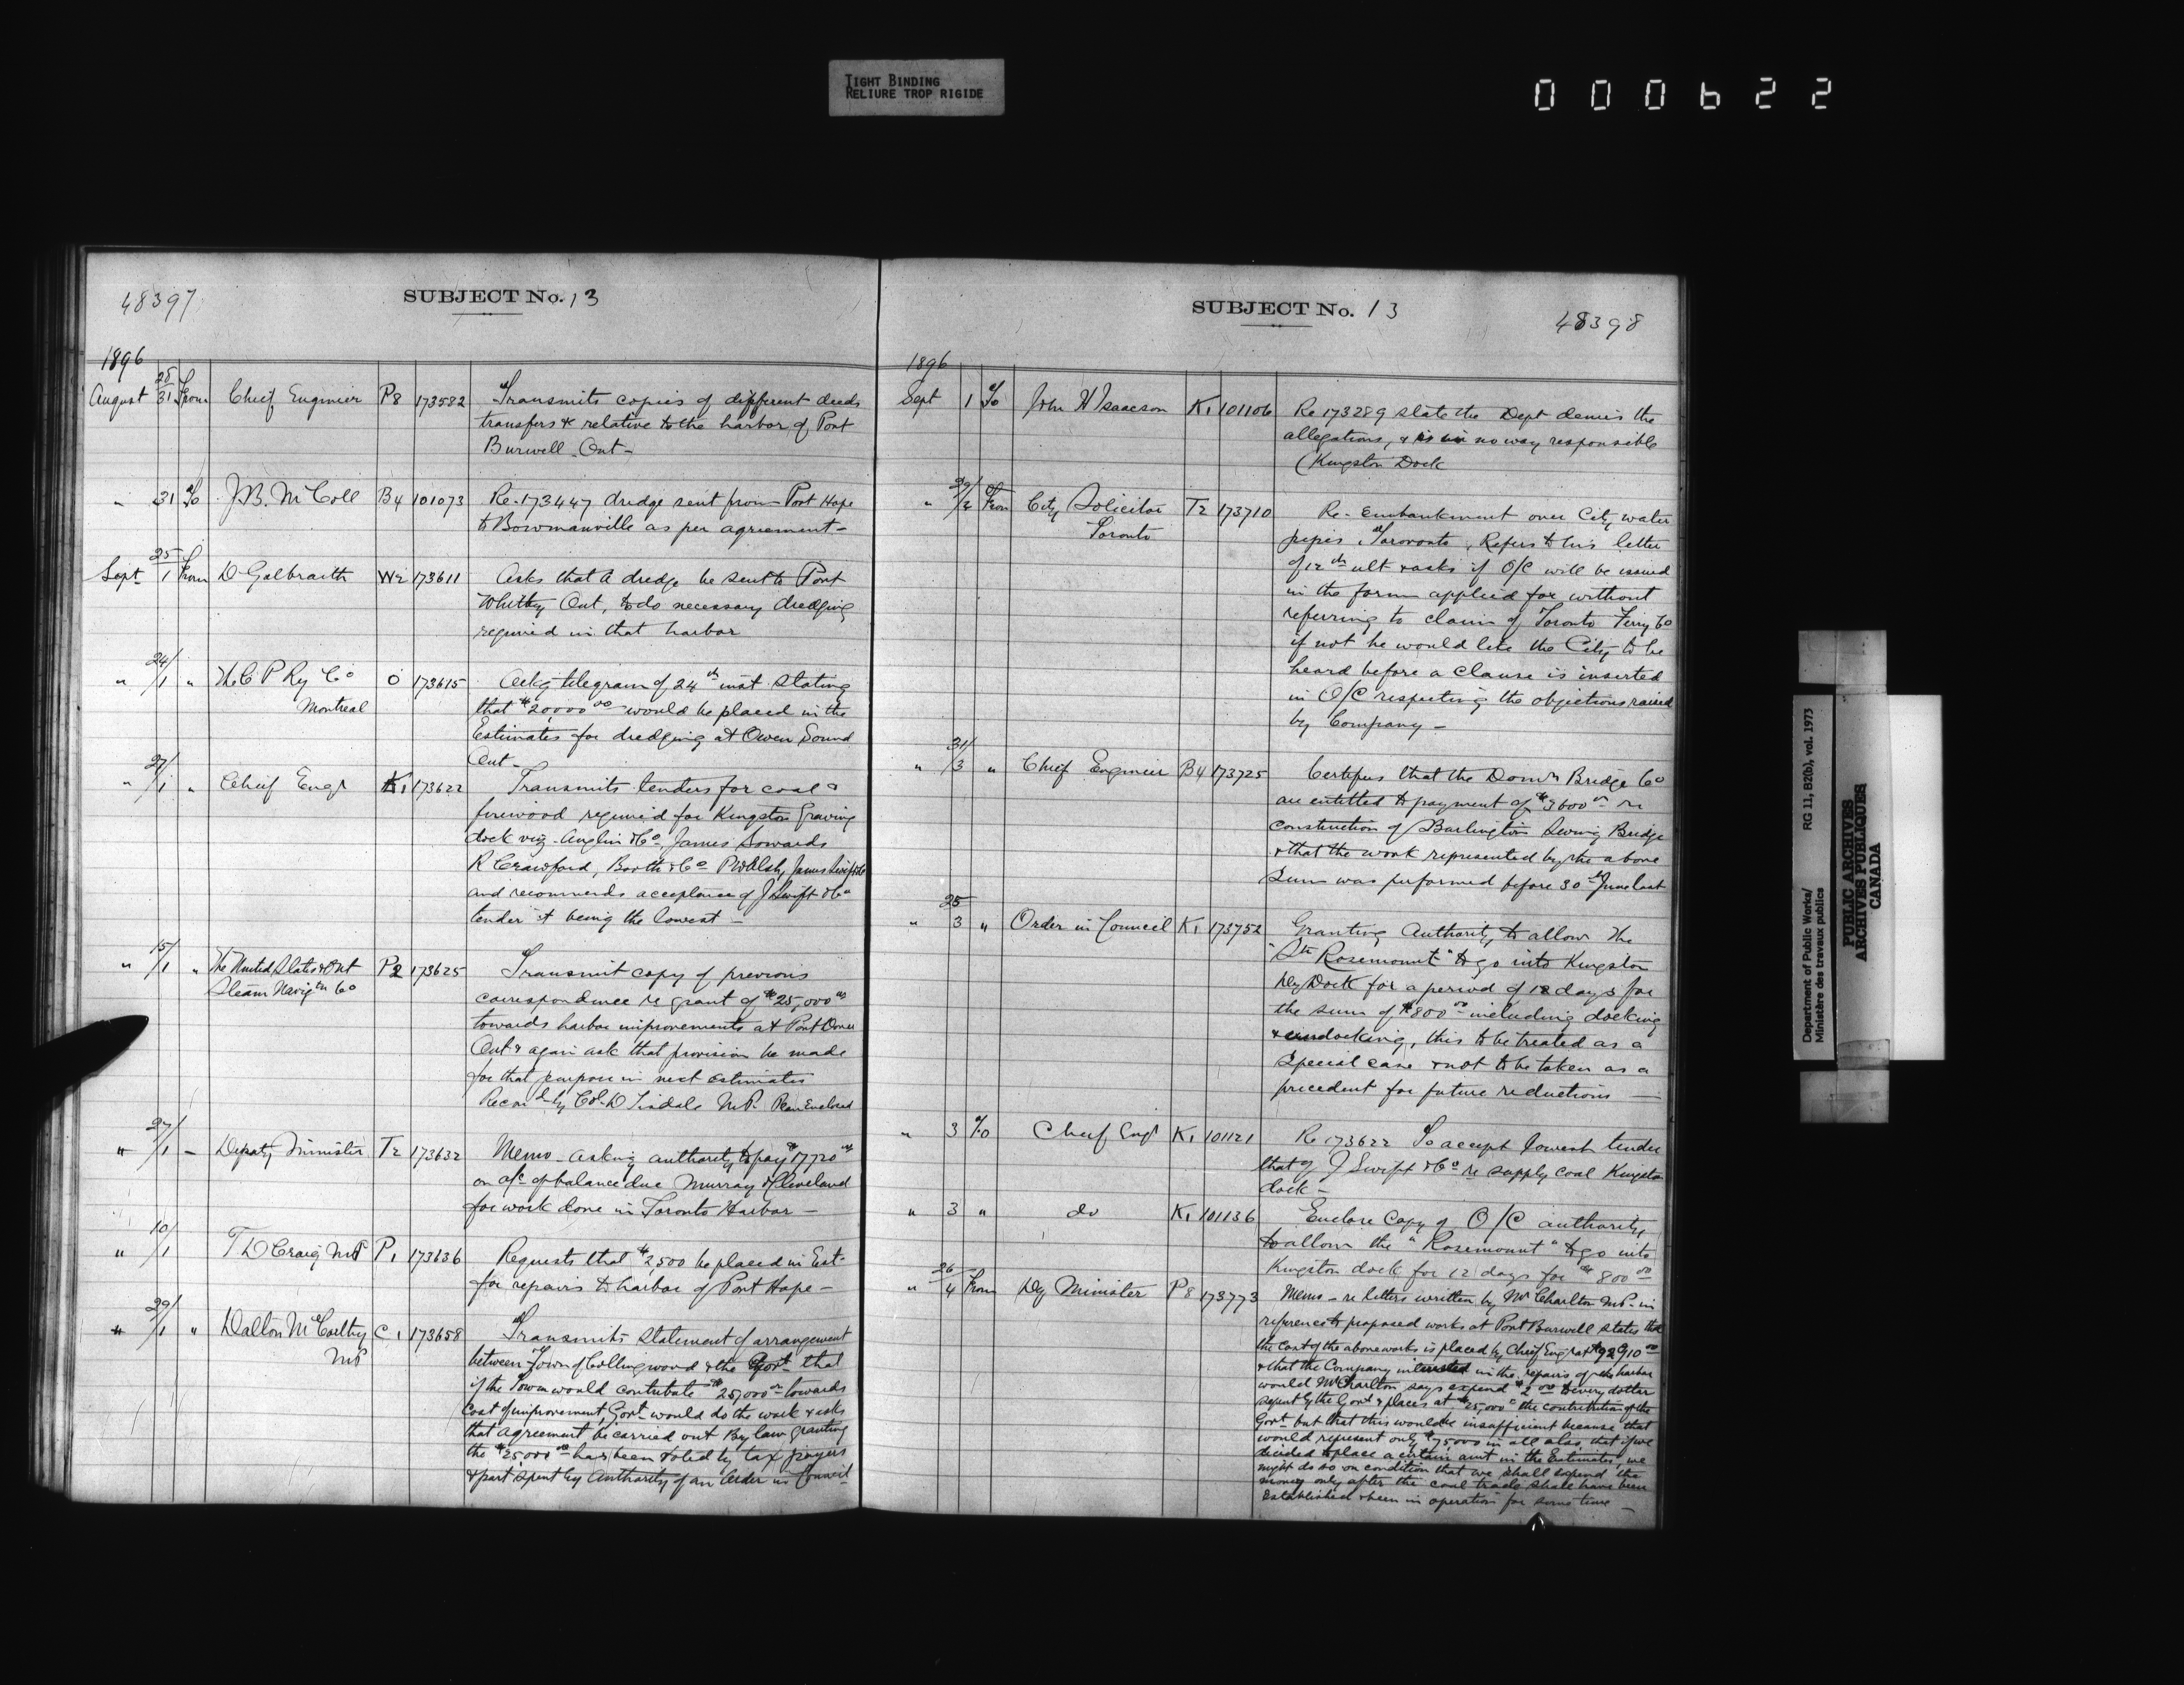 TIGHT BINDING
RELIURE TROP RIGIDE
000622
48397
SUBJECT No. 13
1896
August 28/31 From Chief Engineer P8 173582 Transmits copies of different deeds
transfers & relative to the harbor of Port
Burwell Ont -
" 31 To J.B. McColl B4 101073 Re 173447 dredge sent from Port Hope
to Bowmanville as per agreement -
Sept 25/1 From D Galbraith W2 173611 Asks that a dredge be sent to Port
Whitby Ont, to do necessary dredging
required in that harbor
" 24/1 " The C P Ry Co O 173615 Ackg telegram of 24th inst stating
Montreal that $20,000.00 would be placed in the
Estimates for dredging at Owen Sound
Ont -
" 27/1 " Chief Engr K1 173622 Transmits tenders for coal &
firewood required for Kingston Graving
dock viz. Anglin & Co, James Sowards
R Crawford, Booth & Co P Walsh, James Swift & Co
and recommends acceptance of J Swift & Co
tender it being the lowest -
" 15/1 " The United States & Ont P2 173625 Transmit copy of previous
Steam Navigtn Co correspondence re grant of $25,000.00
towards harbor improvements at Port Dover
Ont & again ask that provision be made
for that purpose in next estimates
Recomd by Col D Tisdale M.P. Plan Enclosed
" 27/1 - Deputy Minister T2 173632 Memo - asking authority to pay $17720.00
on a/c of balance due Murray & Cleveland
for work done in Toronto Harbor -
" 10/1 T D Craig MP P1 173636 Requests that $2,500 be placed in Est-
for repairs to harbor of Port Hope -
" 29/1 " Dalton McCarthy C1 173658 Transmits statement of arrangement
MP between Town of Collingwood & the Govt that
if the Town would contribute $25,000.00 towards
cost of improvement, Govt would do the work & asks
that agreement be carried out By law granting
the $25,000.00 has been voted by tax payers
& part spent by Authority of an Order in Council
SUBJECT No. 13
48398
1896
Sept 1 To John H Isaacson K1 101106 Re 173289 state the Dept denies the
allegations, & is in no way responsible
(Kingston Dock
" 29/2 From City Solicitor T2 173710 Re - Embankment over City water
Toronto pipes, Toronto, Refers to his letter
of 12th ult & asks if O/C will be issued
in the form applied for without
referring to claim of Toronto Ferry Co
if not he would like the City to be
heard before a clause is inserted
in O/C respecting the objections raised
by Company -
" 31/3 " Chief Engineer B4 173725 Certifies that the Domn Bridge Co
are entitled to payment of $3600.00 re
construction of Burlington Swing Bridge
& that the work represented by the above
sum was performed before 30th June last
" 25/3 " Order in Council K1 173752 Granting Authority to allow the
"Str Rosemount" to go into Kingston
Dry Dock for a period of 12 days for
the sum of $800.00 including docking
& undocking, this to be treated as a
special case & not to be taken as a
precedent for future reductions -
" 3 To Chief Engr K1 101121 Re 173622 To accept lowest tender
that of J Swift & Co re supply coal Kingston
dock -
" 3 " do K1 101136 Enclose Copy of O/C authority
to allow the "Rosemount" to go into
Kingston dock for 12 days for $800.00
" 26/4 From Dy Minister P8 173773 Memo - re letters written by Mr Charlton M.P. in
reference to proposed works at Port Burwell states that
the cost of the above works is placed by Chief Engr at $92910.00
& that the Company interested in the repairs of the harbor
would Mr Charlton says expend $2.00 to every dollar
spent by the Govt & places at $25,000.00 the contribution of the
Govt but that this would be insufficient because that
would represent only $75,000 in all also, that if we
decided to place a certain amt in the Estimates, we
might do so on condition that we shall expend the
money only after the coal trade shall have been
established & been in operation for some time -
Department of Public Works/
Ministère des travaux publics
RG 11, B2(b), vol. 1973
PUBLIC ARCHIVES
ARCHIVES PUBLIQUES
CANADA